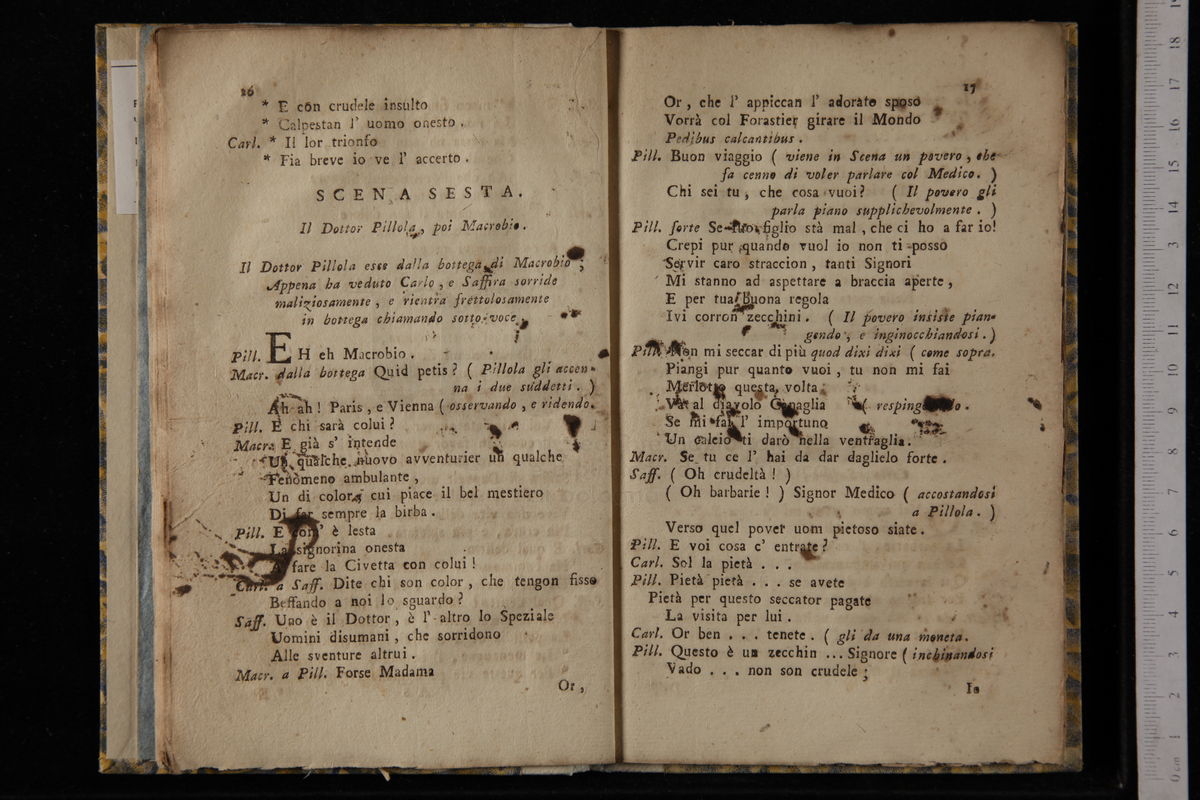 26
* E con crudele insulto
* Calpestan l' uomo onesto.
Carl. * Il lor trionfo
* Fia breve io ve l' accerto.
SCENA SESTA.
Il Dottor Pillola, poi Macrobio.
Il Dottor Pillola esce dalla bottega di Macrobio;
Appena ha veduto Carlo, e Saffira sorride
maliziosamente, e rientra frettolosamente
in bottega chiamando sotto voce,
Pill. EH eh Macrobio.
Macr. dalla bottega Quid petis? ( Pillola gli accen-
na i due suddetti. )
Ah ah! Paris, e Vienna ( osservando, e ridendo.
Pill. E chi sarà colui?
Macr. E già s' intende
Un qualche nuovo avventurier un qualche
Fenomeno ambulante,
Un di color, cui piace il bel mestiero
Di far sempre la birba.
Pill. E com' è lesta
La signorina onesta
A fare la Civetta con colui!
Carl. a Saff. Dite chi son color, che tengon fisso
Beffando a noi lo sguardo?
Saff. Uno è il Dottor, è l' altro lo Speziale
Uomini disumani, che sorridono
Alle sventure altrui.
Macr. a Pill. Forse Madama
Or,
17
Or, che l' appiccan l' adorato sposo
Vorrà col Forastier girare il Mondo
Pedibus calcantibus.
Pill. Buon viaggio ( viene in Scena un povero, che
fa cenno di voler parlare col Medico. )
Chi sei tu, che cosa vuoi? ( Il povero gli
parla piano supplichevolmente. )
Pill. forte Se tuo figlio stà mal, che ci ho a far io!
Crepi pur quando vuol io non ti posso
Servir caro straccion, tanti Signori
Mi stanno ad aspettare a braccia aperte,
E per tua buona regola
Ivi corron zecchini. ( Il povero insiste pian-
gendo, e inginocchiandosi. )
Pill. Non mi seccar di più quod dixi dixi ( come sopra.
Piangi pur quanto vuoi, tu non mi fai
Merlotto questa volta;
Va al diavolo Canaglia ( respingendolo.
Se mi fai l' importuno
Un calcio ti darò nella ventraglia.
Macr. Se tu ce l' hai da dar daglielo forte.
Saff. ( Oh crudeltà! )
( Oh barbarie! ) Signor Medico ( accostandosi
a Pillola. )
Verso quel pover uom pietoso siate.
Pill. E voi cosa c' entrate?
Carl. Sol la pietà . . .
Pill. Pietà pietà . . . se avete
Pietà per questo seccator pagate
La visita per lui.
Carl. Or ben . . . tenete. ( gli da una moneta.
Pill. Questo è un zecchin ... Signore ( inchinandosi
Vado . . . non son crudele;
Io